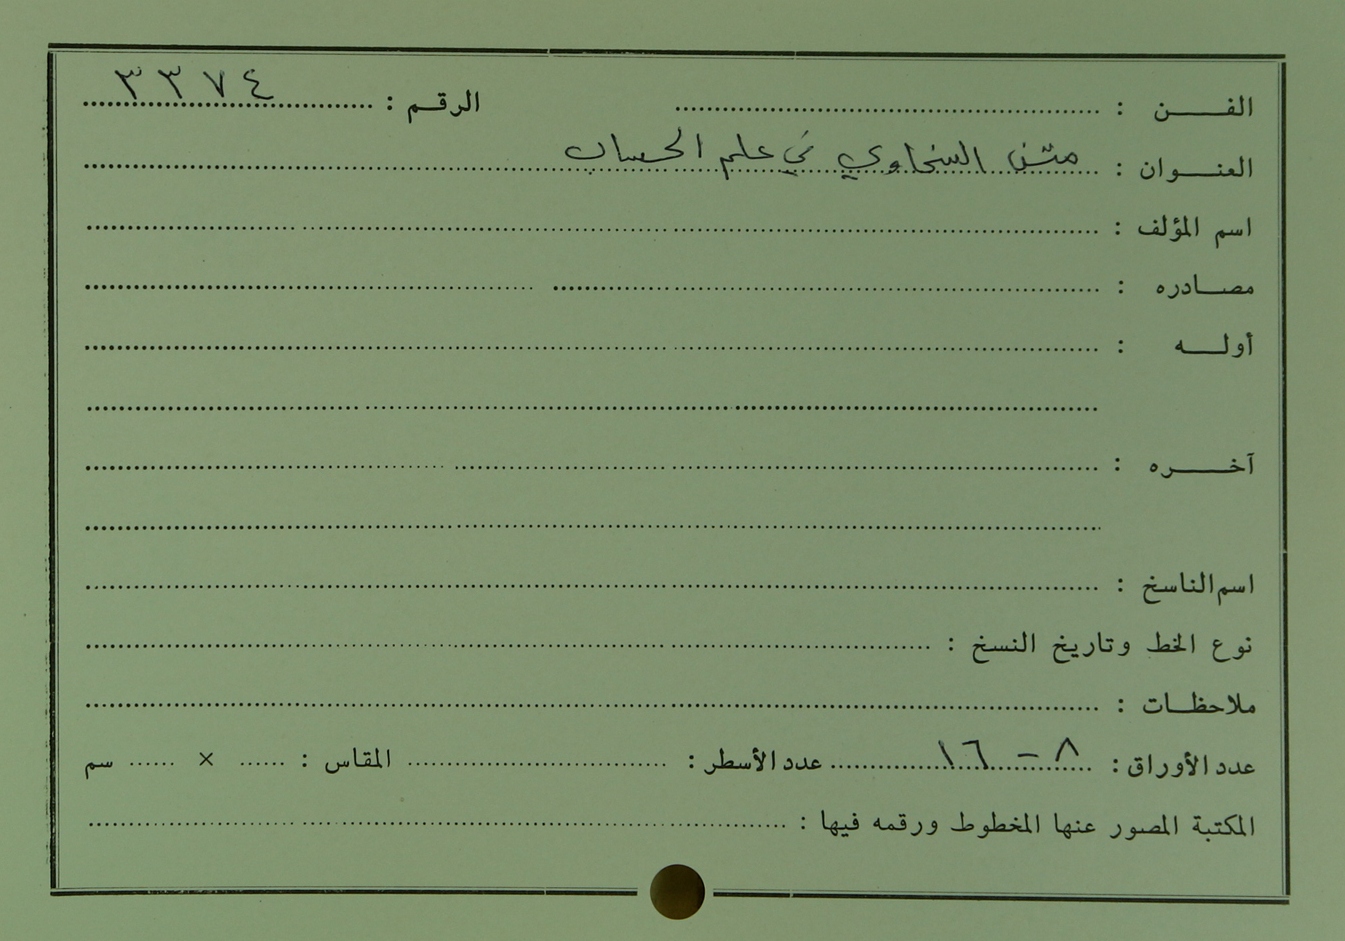 الفن : الرقم : ٣٣٧٤
العنوان : متن السخاوي في علم الحساب
اسم المؤلف :
مصادره :
أوله :
آخره :
اسم الناسخ :
نوع الخط وتاريخ النسخ :
ملاحظات :
عدد الأوراق : ٨ - ١٦ عدد الأسطر : المقاس : × سم
المكتبة المصور عنها المخطوط ورقمه فيها :